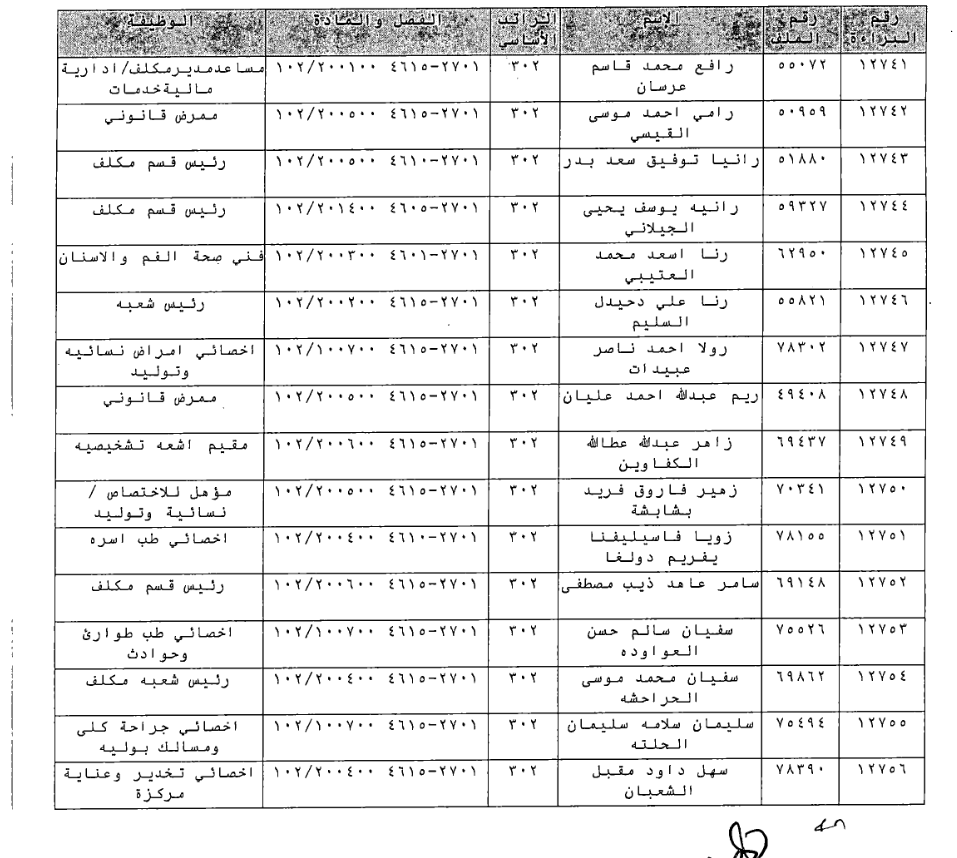 رقم البراءة رقم الملف الاسم الراتب الأساسي الفصل والمادة الوظيفة
١٢٧٤١ ٥٥٠٧٢ رافع محمد قاسم عرسان ٣٠٢ ٢٧٠١-٤٦١٥ ١٠٢/٢٠٠١٠٠ مساعدمديرمكلف/ادارية ماليةخدمات
١٢٧٤٢ ٥٠٩٥٩ رامي احمد موسى القيسي ٣٠٢ ٢٧٠١-٤٦١٥ ١٠٢/٢٠٠٥٠٠ ممرض قانوني
١٢٧٤٣ ٥١٨٨٠ رانيا توفيق سعد بدر ٣٠٢ ٢٧٠١-٤٦١٠ ١٠٢/٢٠٠٥٠٠ رئيس قسم مكلف
١٢٧٤٤ ٥٩٣٢٧ رانيه يوسف يحيى الجيلاني ٣٠٢ ٢٧٠١-٤٦٠٥ ١٠٢/٢٠١٤٠٠ رئيس قسم مكلف
١٢٧٤٥ ٦٢٩٥٠ رنا اسعد محمد العتيبي ٣٠٢ ٢٧٠١-٤٦٠١ ١٠٢/٢٠٠٣٠٠ فني صحة الفم والاسنان
١٢٧٤٦ ٥٥٨٢١ رنا علي دحيدل السليم ٣٠٢ ٢٧٠١-٤٦١٥ ١٠٢/٢٠٠٢٠٠ رئيس شعبه
١٢٧٤٧ ٧٨٣٠٢ رولا احمد ناصر عبيدات ٣٠٢ ٢٧٠١-٤٦١٥ ١٠٢/١٠٠٧٠٠ اخصائي امراض نسائيه وتوليد
١٢٧٤٨ ٤٩٤٠٨ ريم عبدالله احمد عليان ٣٠٢ ٢٧٠١-٤٦١٥ ١٠٢/٢٠٠٥٠٠ ممرض قانوني
١٢٧٤٩ ٦٩٤٣٧ زاهر عبدالله عطاالله الكفاوين ٣٠٢ ٢٧٠١-٤٦١٥ ١٠٢/٢٠٠٦٠٠ مقيم اشعه تشخيصيه
١٢٧٥٠ ٧٠٣٤١ زهير فاروق فريد بشابشة ٣٠٢ ٢٧٠١-٤٦١٥ ١٠٢/٢٠٠٥٠٠ مؤهل للاختصاص / نسائية وتوليد
١٢٧٥١ ٧٨١٥٥ زويا فاسيليفنا يفريم دولغا ٣٠٢ ٢٧٠١-٤٦١٠ ١٠٢/٢٠٠٤٠٠ اخصائي طب اسره
١٢٧٥٢ ٦٩١٤٨ سامر عاهد ذيب مصطفى ٣٠٢ ٢٧٠١-٤٦١٥ ١٠٢/٢٠٠٦٠٠ رئيس قسم مكلف
١٢٧٥٣ ٧٥٥٢٦ سفيان سالم حسن العواوده ٣٠٢ ٢٧٠١-٤٦١٥ ١٠٢/١٠٠٧٠٠ اخصائي طب طوارئ وحوادث
١٢٧٥٤ ٦٩٨٦٢ سفيان محمد موسى الحراحشه ٣٠٢ ٢٧٠١-٤٦١٥ ١٠٢/٢٠٠٤٠٠ رئيس شعبه مكلف
١٢٧٥٥ ٧٥٤٩٤ سليمان سلامه سليمان الحلته ٣٠٢ ٢٧٠١-٤٦١٥ ١٠٢/١٠٠٧٠٠ اخصائي جراحة كلى ومسالك بوليه
١٢٧٥٦ ٧٨٣٩٠ سهل داود مقبل الشعبان ٣٠٢ ٢٧٠١-٤٦١٥ ١٠٢/٢٠٠٤٠٠ اخصائي تخدير وعناية مركزة